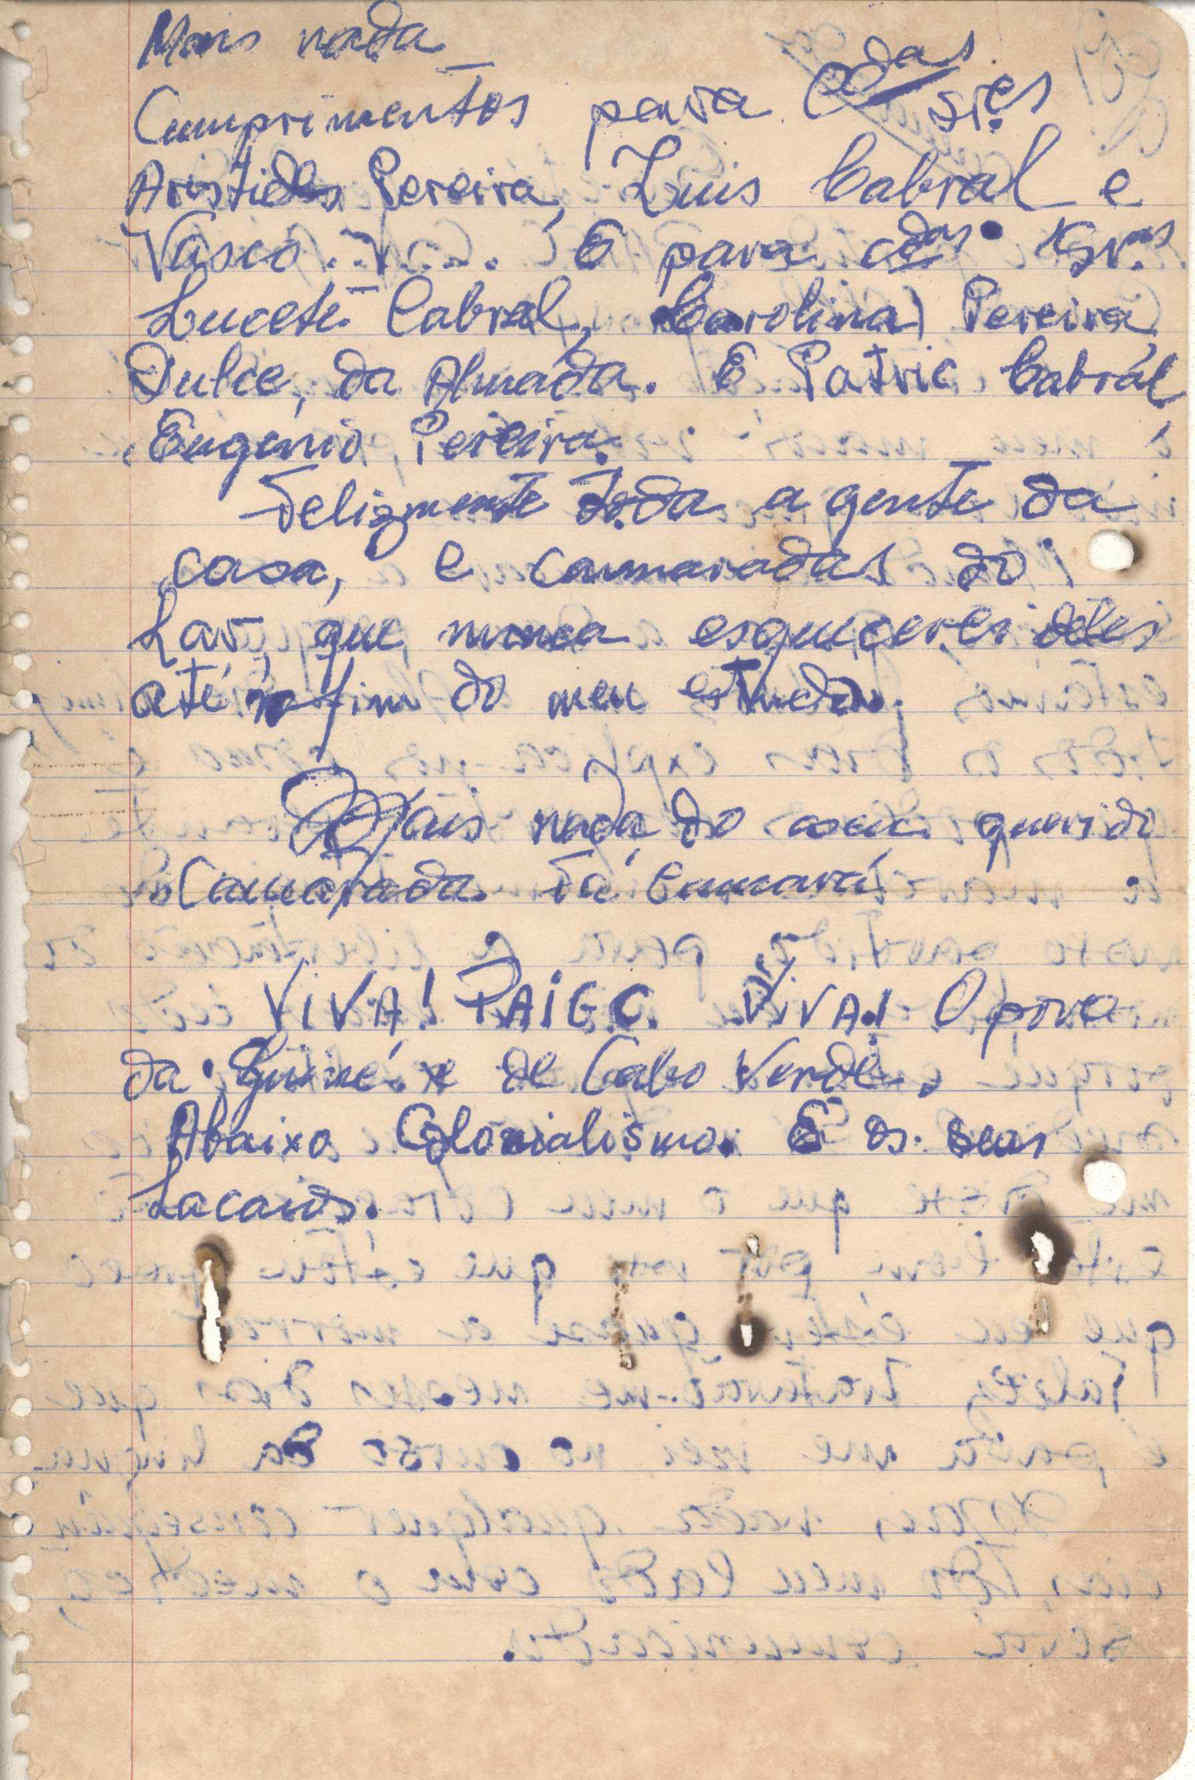 Mais nada
Cumprimentos para Cdas sr.es
Aristides Pereira, Luis Cabral e
Vasco. V.... E para cdas Sr.as
Lucete Cabral, Carolina Pereira,
Dulce, da Almada. E Patric Cabral,
Eugenio Pereira.
Felizmente toda a gente da
casa, e camaradas do
Lar, que nunca esquecerei deles
até fim do meu estudo.
Mais nada do querido
Camarada Tá Camará
VIVA! PAIGC. VIVA! O povo
da Guiné e de Cabo Verde,
Abaixo Colonialismo. E os seus
Lacaios.